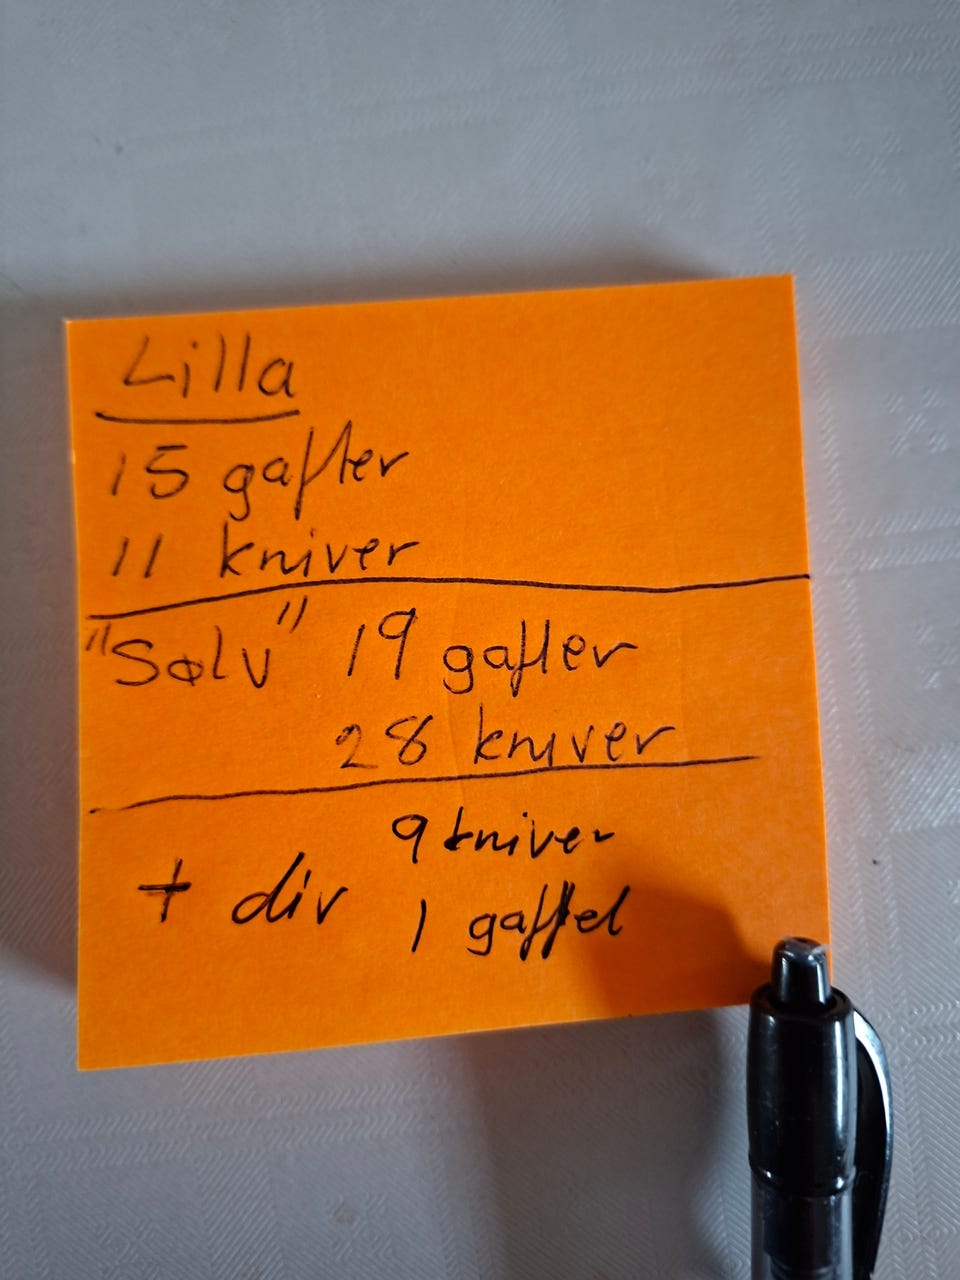 Lilla
15 gafler
11 kniver
"Sølv" 19 gafler
28 kniver
9 kniver
+ div 1 gaffel